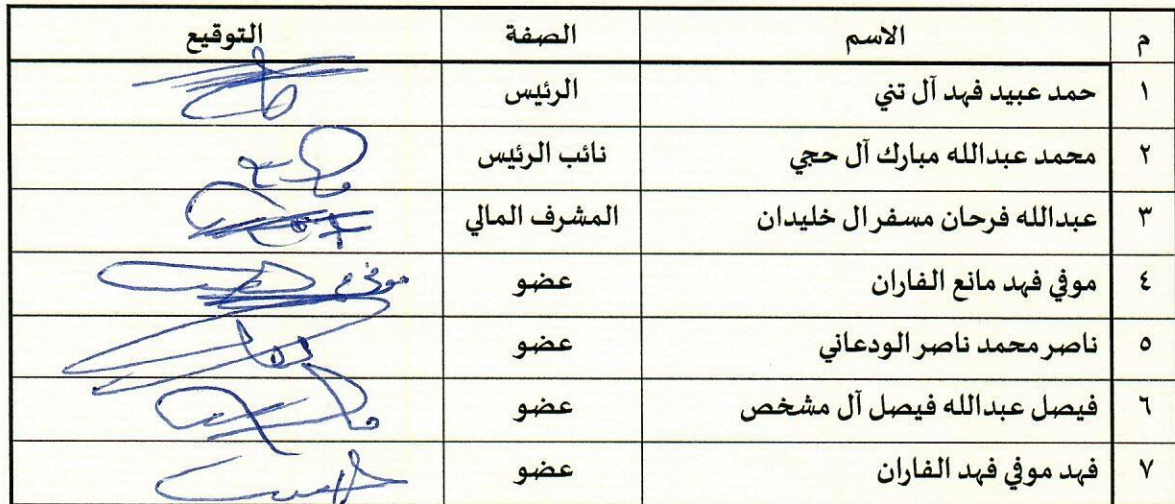 م الاسم الصفة التوقيع
١ حمد عبيد فهد آل تني الرئيس
٢ محمد عبدالله مبارك آل حجي نائب الرئيس
٣ عبدالله فرحان مسفر ال خليدان المشرف المالي
٤ موفي فهد مانع الفاران عضو
٥ ناصر محمد ناصر الودعاني عضو
٦ فيصل عبدالله فيصل آل مشخص عضو
٧ فهد موفي فهد الفاران عضو